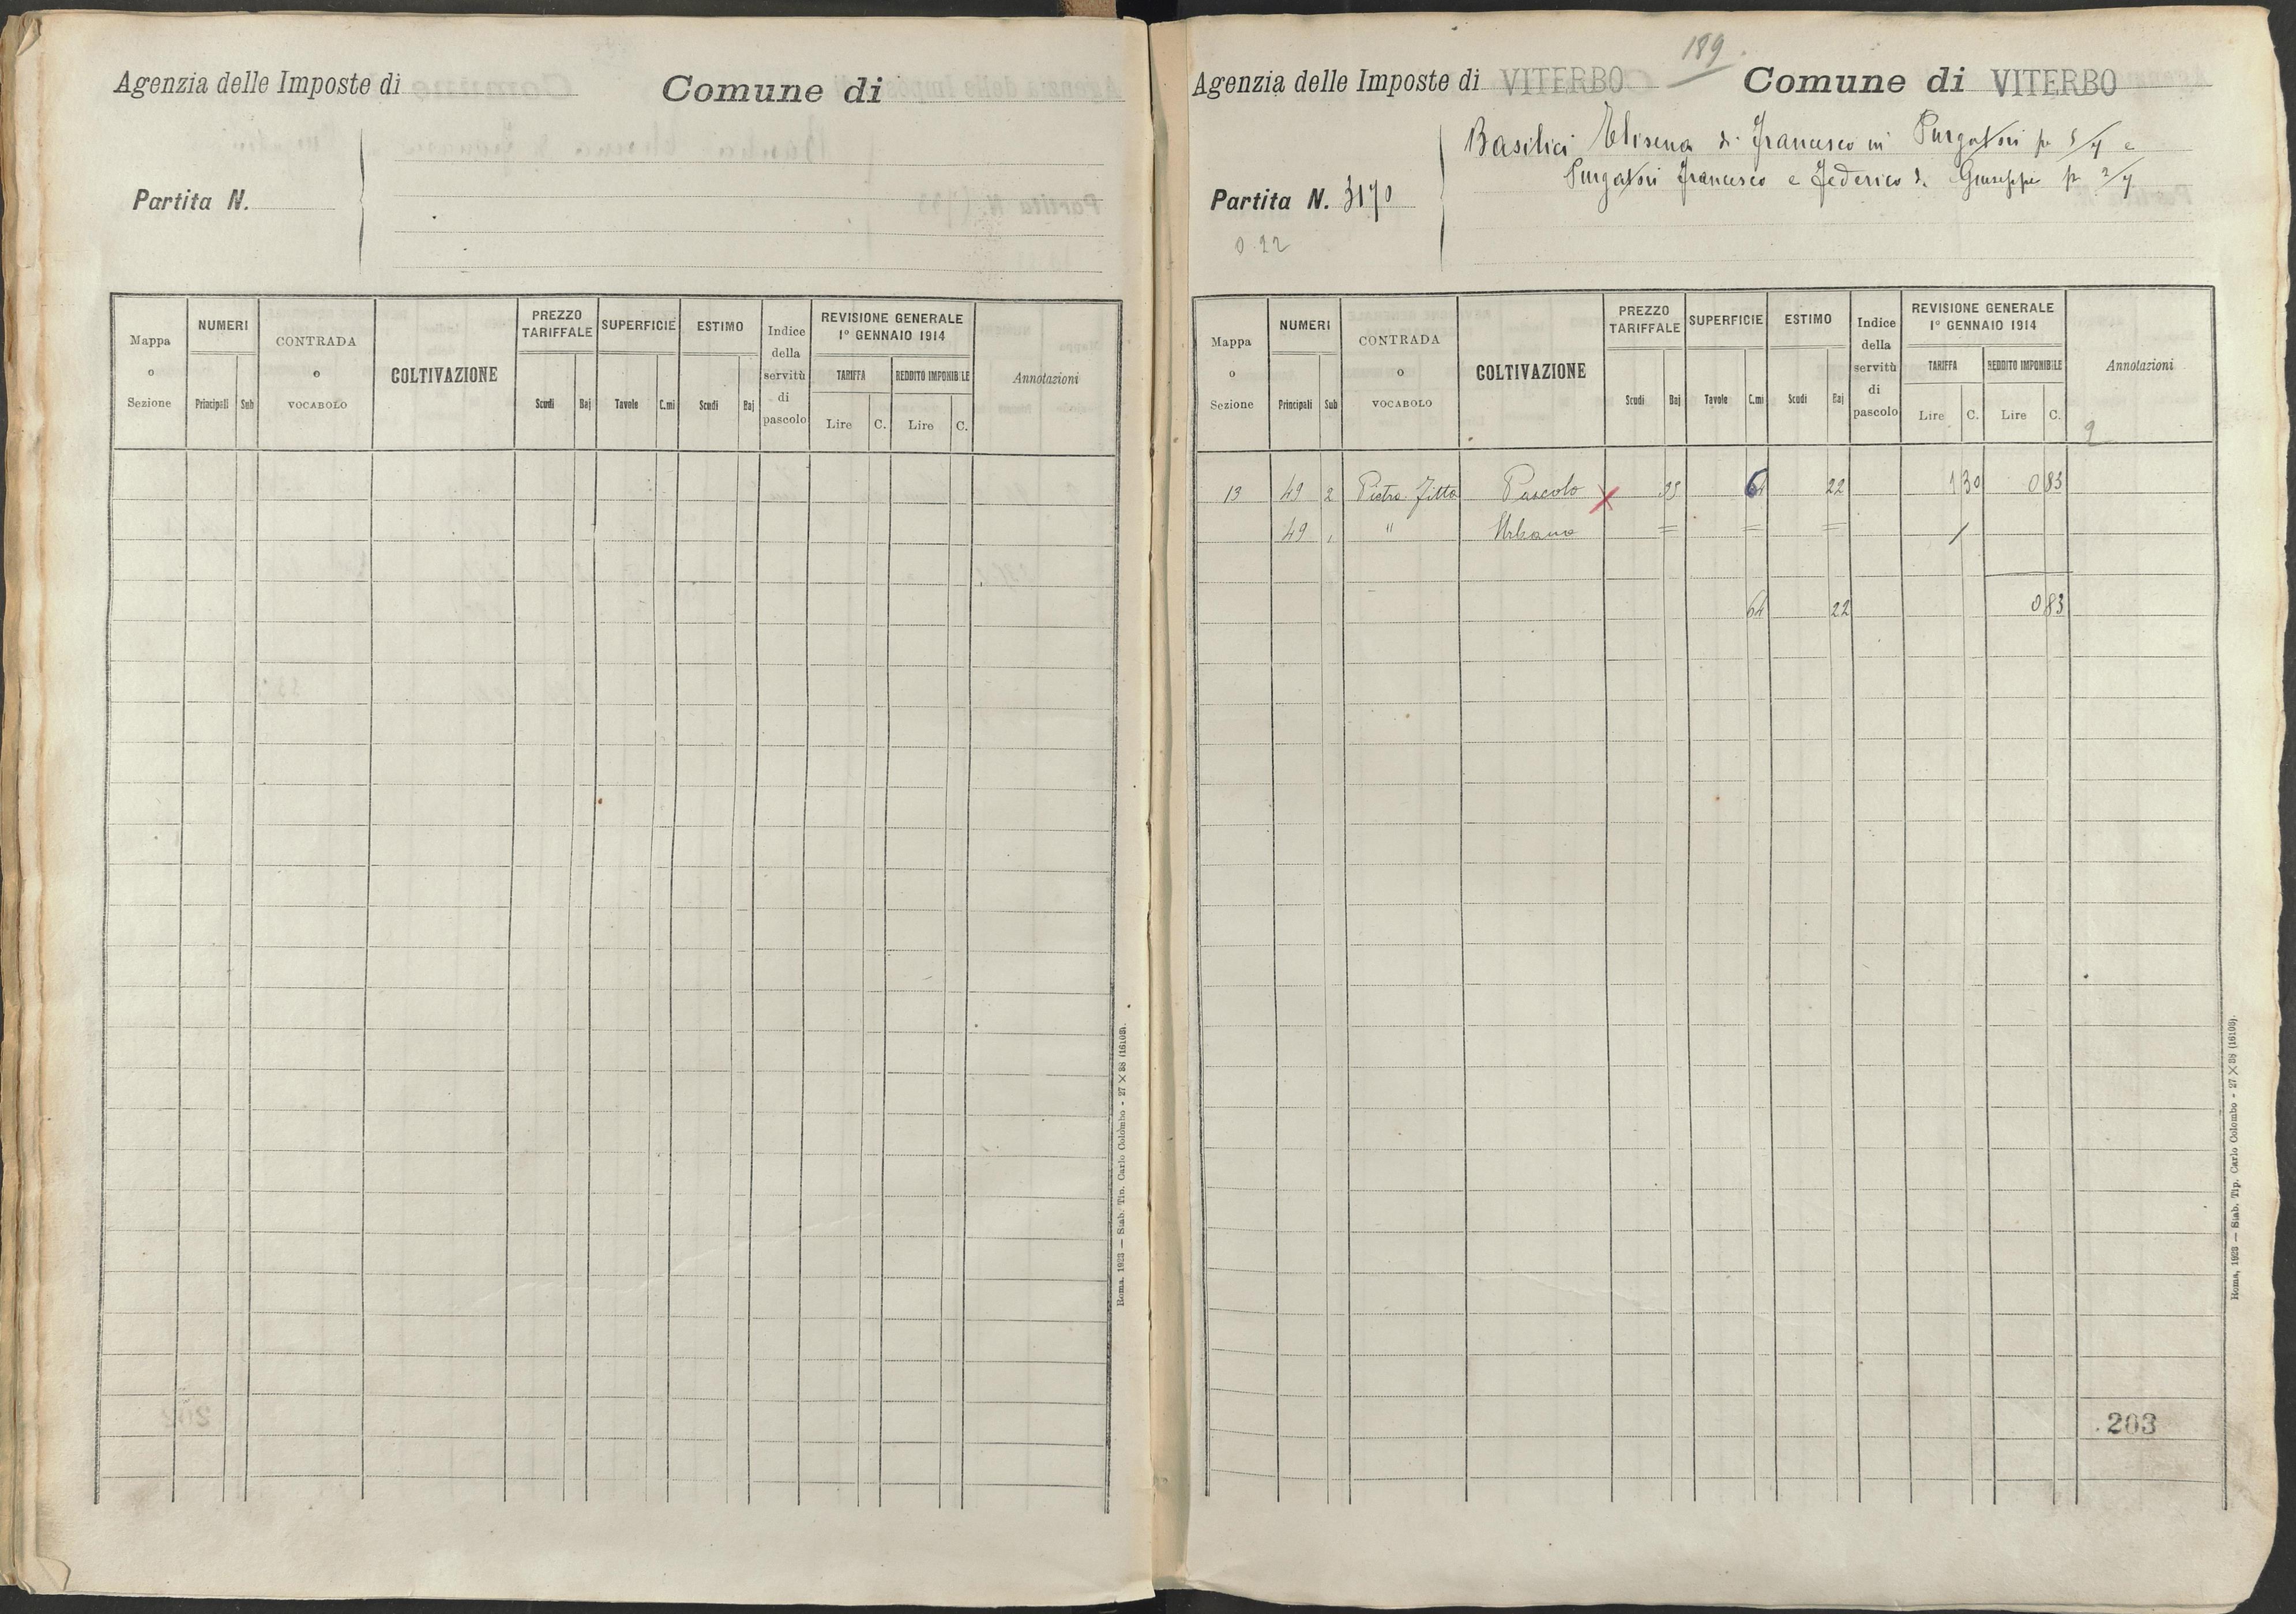 Agenzia delle Imposte di
Comune di
Partita N.
Mappa o Sezione
NUMERI
Principali
Sub
CONTRADA o VOCABOLO
COLTIVAZIONE
PREZZO TARIFFALE
Scudi
Baj
SUPERFICIE
Tavole
C.mi
ESTIMO
Scudi
Baj
Indice della servitù di pascolo
REVISIONE GENERALE
1° GENNAIO 1914
TARIFFA
REDDITO IMPONIBILE
Lire
C.
Lire
C.
Annotazioni
Roma, 1923 — Stab. Tip. Carlo Colombo - 27 X 38 (16108).
189
Agenzia delle Imposte di VITERBO
Comune di VITERBO
Basilici Elisena di Francesco in Purgatori p 5/7 e
Purgatori Francesco e Federico di Giuseppe p 2/7
Partita N. 3170
0.22
Mappa o Sezione
NUMERI
Principali
Sub
CONTRADA o VOCABOLO
COLTIVAZIONE
PREZZO TARIFFALE
Scudi
Baj
SUPERFICIE
Tavole
C.mi
ESTIMO
Scudi
Baj
Indice della servitù di pascolo
REVISIONE GENERALE
1° GENNAIO 1914
TARIFFA
REDDITO IMPONIBILE
Lire
C.
Lire
C.
Annotazioni
2
13 49 2 Pietra Fitta Pascolo X 35 64 22 1 30 0 83
49 1 " Urbano = = =
64 22 0 83
203
Roma, 1923 — Stab. Tip. Carlo Colombo - 27 X 38 (16108).